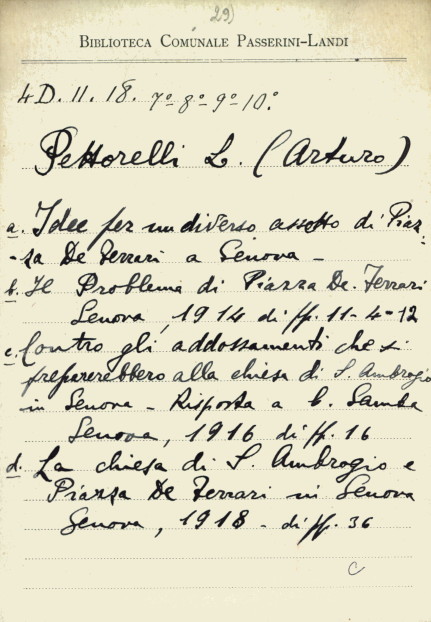 29)
BIBLIOTECA COMUNALE PASSERINI-LANDI
4 D. 11. 18. 7º 8º 9º 10º
Pettorelli L. (Arturo)
a. Idee per un diverso assetto di Piaz-
-za De Ferrari a Genova -
b. Il Problema di Piazza De Ferrari
Genova, 1914 di ff. 11-4-12
c. Contro gli addossamenti che si
preparerebbero alla chiesa di S. Ambrogio
in Genova - Risposta a
Genova, 1916 di ff. 16
d. La chiesa di S. Ambrogio e
Piazza De Ferrari in Genova
Genova, 1918 - di ff. 36
C